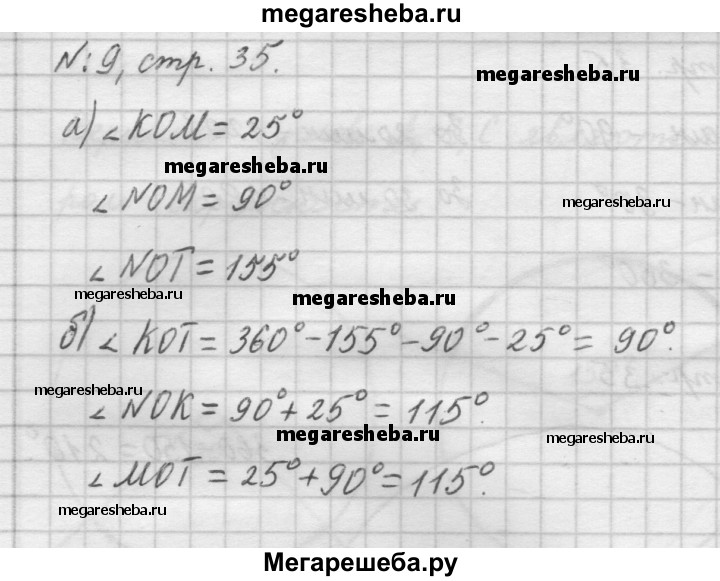 megaresheba.ru
N: 9, стр. 35.
megaresheba.ru
а) ∠KOM = 25°
megaresheba.ru
∠NOM = 90°
megaresheba.ru
∠NOT = 155°
megaresheba.ru
megaresheba.ru
б) ∠KOT = 360° - 155° - 90° - 25° = 90°.
megaresheba.ru
∠NOK = 90° + 25° = 115°.
megaresheba.ru
megaresheba.ru
∠MOT = 25° + 90° = 115°.
megaresheba.ru
Мегарешеба.ру